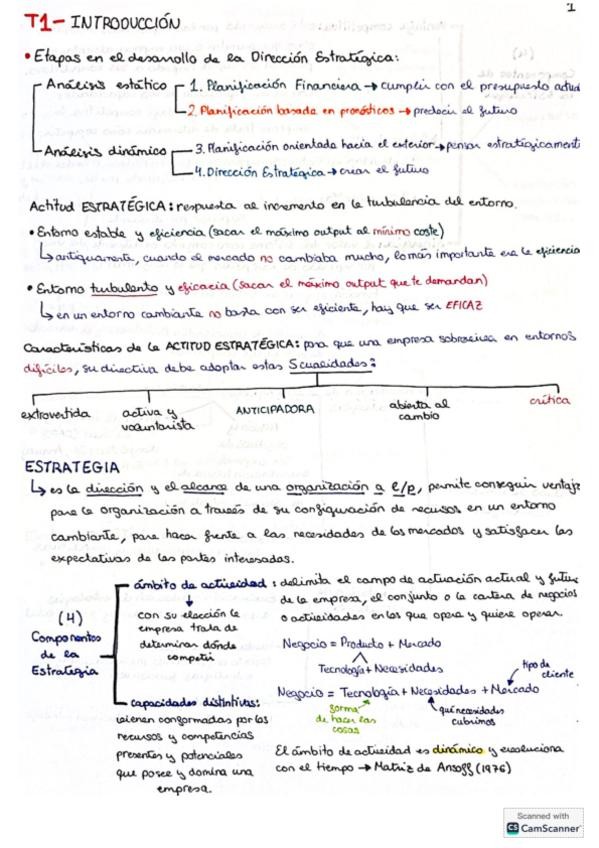 1
T1- INTRODUCCIÓN
• Etapas en el desarrollo de la Dirección Estratégica:
Análisis estático
1. Planificación Financiera → cumplir con el presupuesto actual
2. Planificación basada en pronósticos → predecir el futuro
Análisis dinámico
3. Planificación orientada hacia el exterior → pensar estratégicamente
4. Dirección Estratégica → crear el futuro
Actitud ESTRATÉGICA: respuesta al incremento en la turbulencia del entorno.
• Entorno estable y eficiencia (sacar el máximo output al mínimo coste)
↳ antiguamente, cuando el mercado no cambiaba mucho, lo más importante era la eficiencia
• Entorno turbulento y eficacia (sacar el máximo output que te demandan)
↳ en un entorno cambiante no basta con ser eficiente, hay que ser EFICAZ
Características de la ACTITUD ESTRATÉGICA: para que una empresa sobreviva en entornos
difíciles, su directiva debe adoptar estas 5 cualidades:
extrovertida
activa y
voluntarista
ANTICIPADORA
abierta al
cambio
crítica
ESTRATEGIA
↳ es la dirección y el alcance de una organización a e/p, permite conseguir ventaja
para la organización a través de su configuración de recursos en un entorno
cambiante, para hacer frente a las necesidades de los mercados y satisfacer las
expectativas de las partes interesadas.
(4)
Componentes
de la
Estrategia
ámbito de actividad: delimita el campo de actuación actual y futuro
de la empresa, el conjunto o la cartera de negocios
o actividades en los que opera y quiere operar.
con su elección la
empresa trata de
determinar dónde
competir
Negocio = Producto + Mercado
Tecnología + Necesidades
tipo de
cliente
Negocio = Tecnología + Necesidades + Mercado
forma
de hacer las
cosas
qué necesidades
cubrimos
El ámbito de actividad es dinámico y evoluciona
con el tiempo → Matriz de Ansoff (1976)
capacidades distintivas:
vienen conformadas por los
recursos y competencias
presentes y potenciales
que posee y domina una
empresa.
Scanned with
CS CamScanner